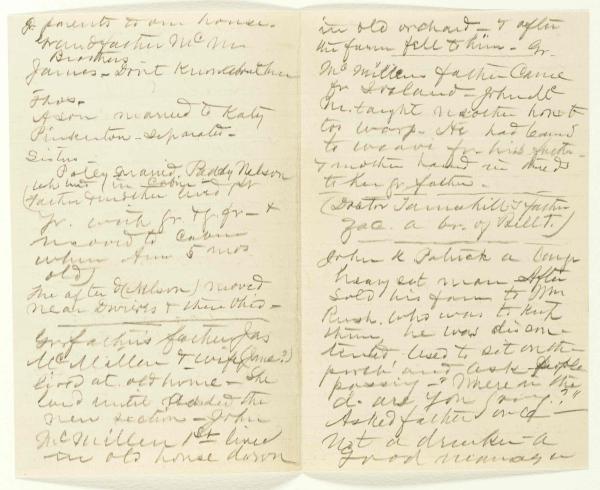 gr parents to our house.
Grandfather Mc M's
Brothers
James - Don't know whether
Thos.
A son married to Katy
Pinkerton - separates -
Sisters -
Polly married Paddy Nelson
(who was in cabin
father & mother lived
Gr. with gr. & gr. - &
moved to cabin
when Ann 5 mos
old)
He after (Nelson) moved
near Dwires & there died -
Grandfather's father Jas
McMillen & wife (Jane?)
lived at old home - She
land until the
new section - John
McMillen 1st lived
in old house down
in old orchard - & after
the farm fell to him - Gr.
McMillen's father came
fr Ireland - John Mc
M. taught mother how to
to warp. He had learned
to weave fr. his father
& mother hand in threads
to her gr. father -
(Doctor Tannehill's father
Zac. a br. of Bill T.)
John & Patrick a large
heavy set man After
sold his farm to Wm
Rush, who was to keep
them, he was discon-
tented. Used to set on the
porch and ask people
passing - "Where in the
d- are you going?"
Asked father once -
Not a drinker - a
Good manager